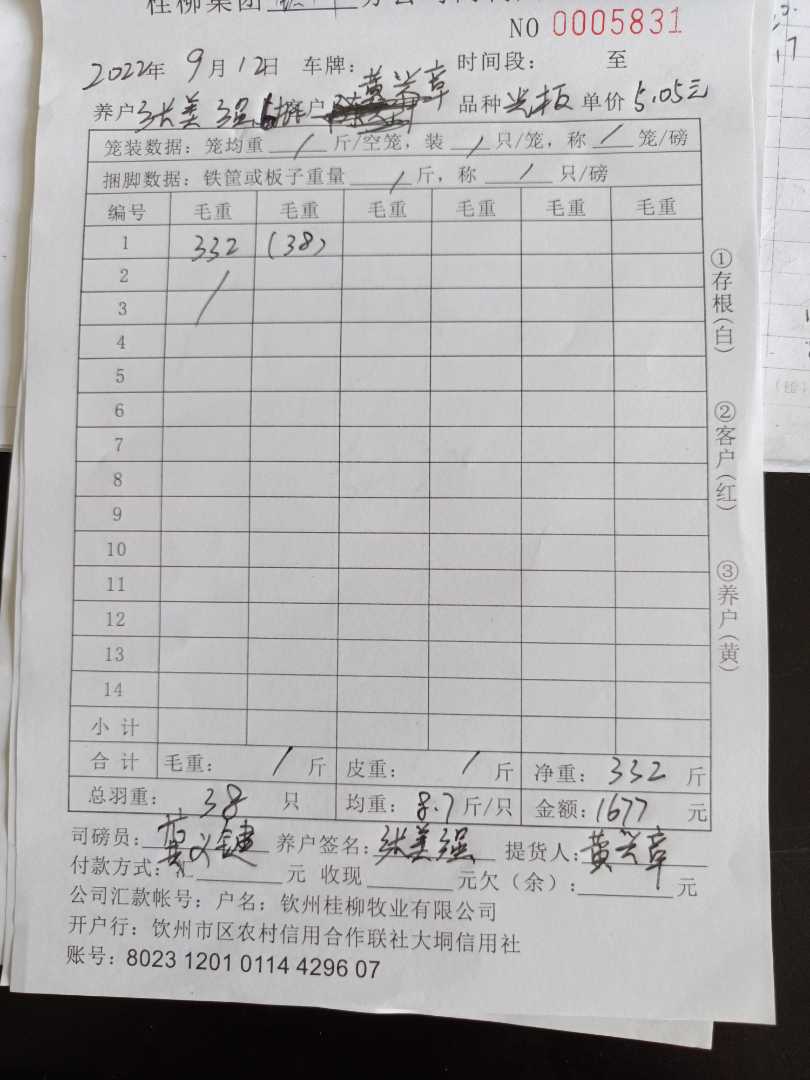 桂柳集团
NO 0005831
2022年 9月12日 车牌: 时间段: 至
养户 张美强 客户 黄兴章 品种 光板 单价 5.05元
笼装数据: 笼均重 / 斤/空笼, 装 / 只/笼, 称 / 笼/磅
捆脚数据: 铁筐或板子重量 / 斤, 称 / 只/磅
编号 毛重 毛重 毛重 毛重 毛重 毛重
1 332 (38)
2 /
3
4
5
6
7
8
9
10
11
12
13
14
小计
合计 毛重: / 斤 皮重: / 斤 净重: 332 斤
总羽重: 38 只 均重: 8.7 斤/只 金额: 1677 元
司磅员: 养户签名: 张美强 提货人: 黄兴章
付款方式: 汇 元 收现 元欠(余): 元
公司汇款帐号: 户名: 钦州桂柳牧业有限公司
开户行: 钦州市区农村信用合作联社大垌信用社
账号: 8023 1201 0114 4296 07
①存根(白)
②客户(红)
③养户(黄)